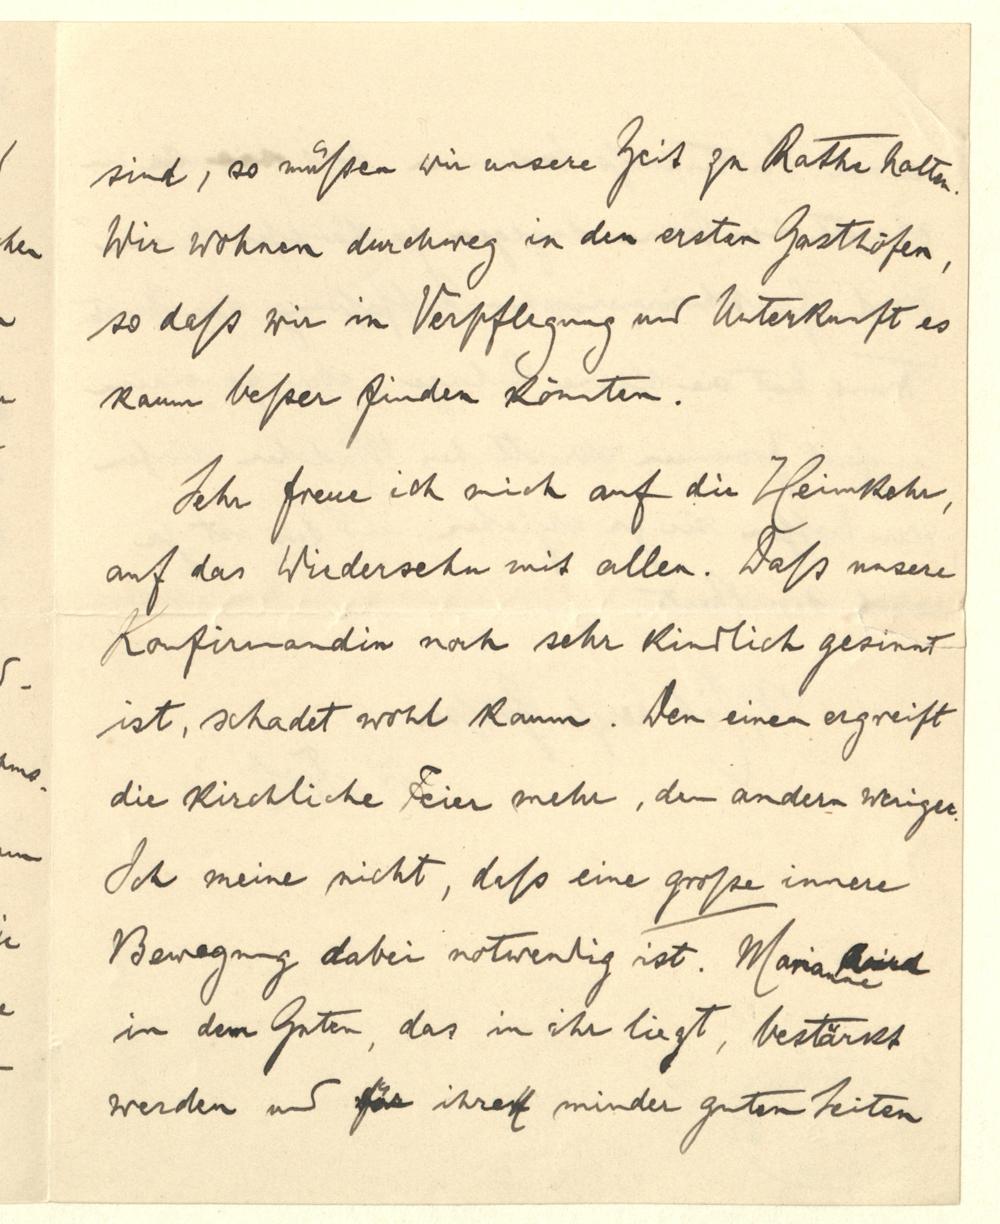 sind, so müßen wir unsere Zeit zu Rathe halten.
Wir wohnen durchweg in den ersten Gasthöfen,
so daß wir in Verpflegung und Unterkunft es
kaum beßer finden könnten.
Sehr freue ich mich auf die Heimkehr,
auf das Wiedersehn mit allen. Daß unsere
Konfirmandin noch sehr kindlich gesinnt
ist, schadet wohl kaum. Den einen ergreift
die kirchliche Feier mehr, den andern weniger.
Ich meine nicht, daß eine große innere
Bewegung dabei notwendig ist. Marianne wird
in dem Guten, das in ihr liegt, bestärkt
werden und für ihre minder guten Seiten